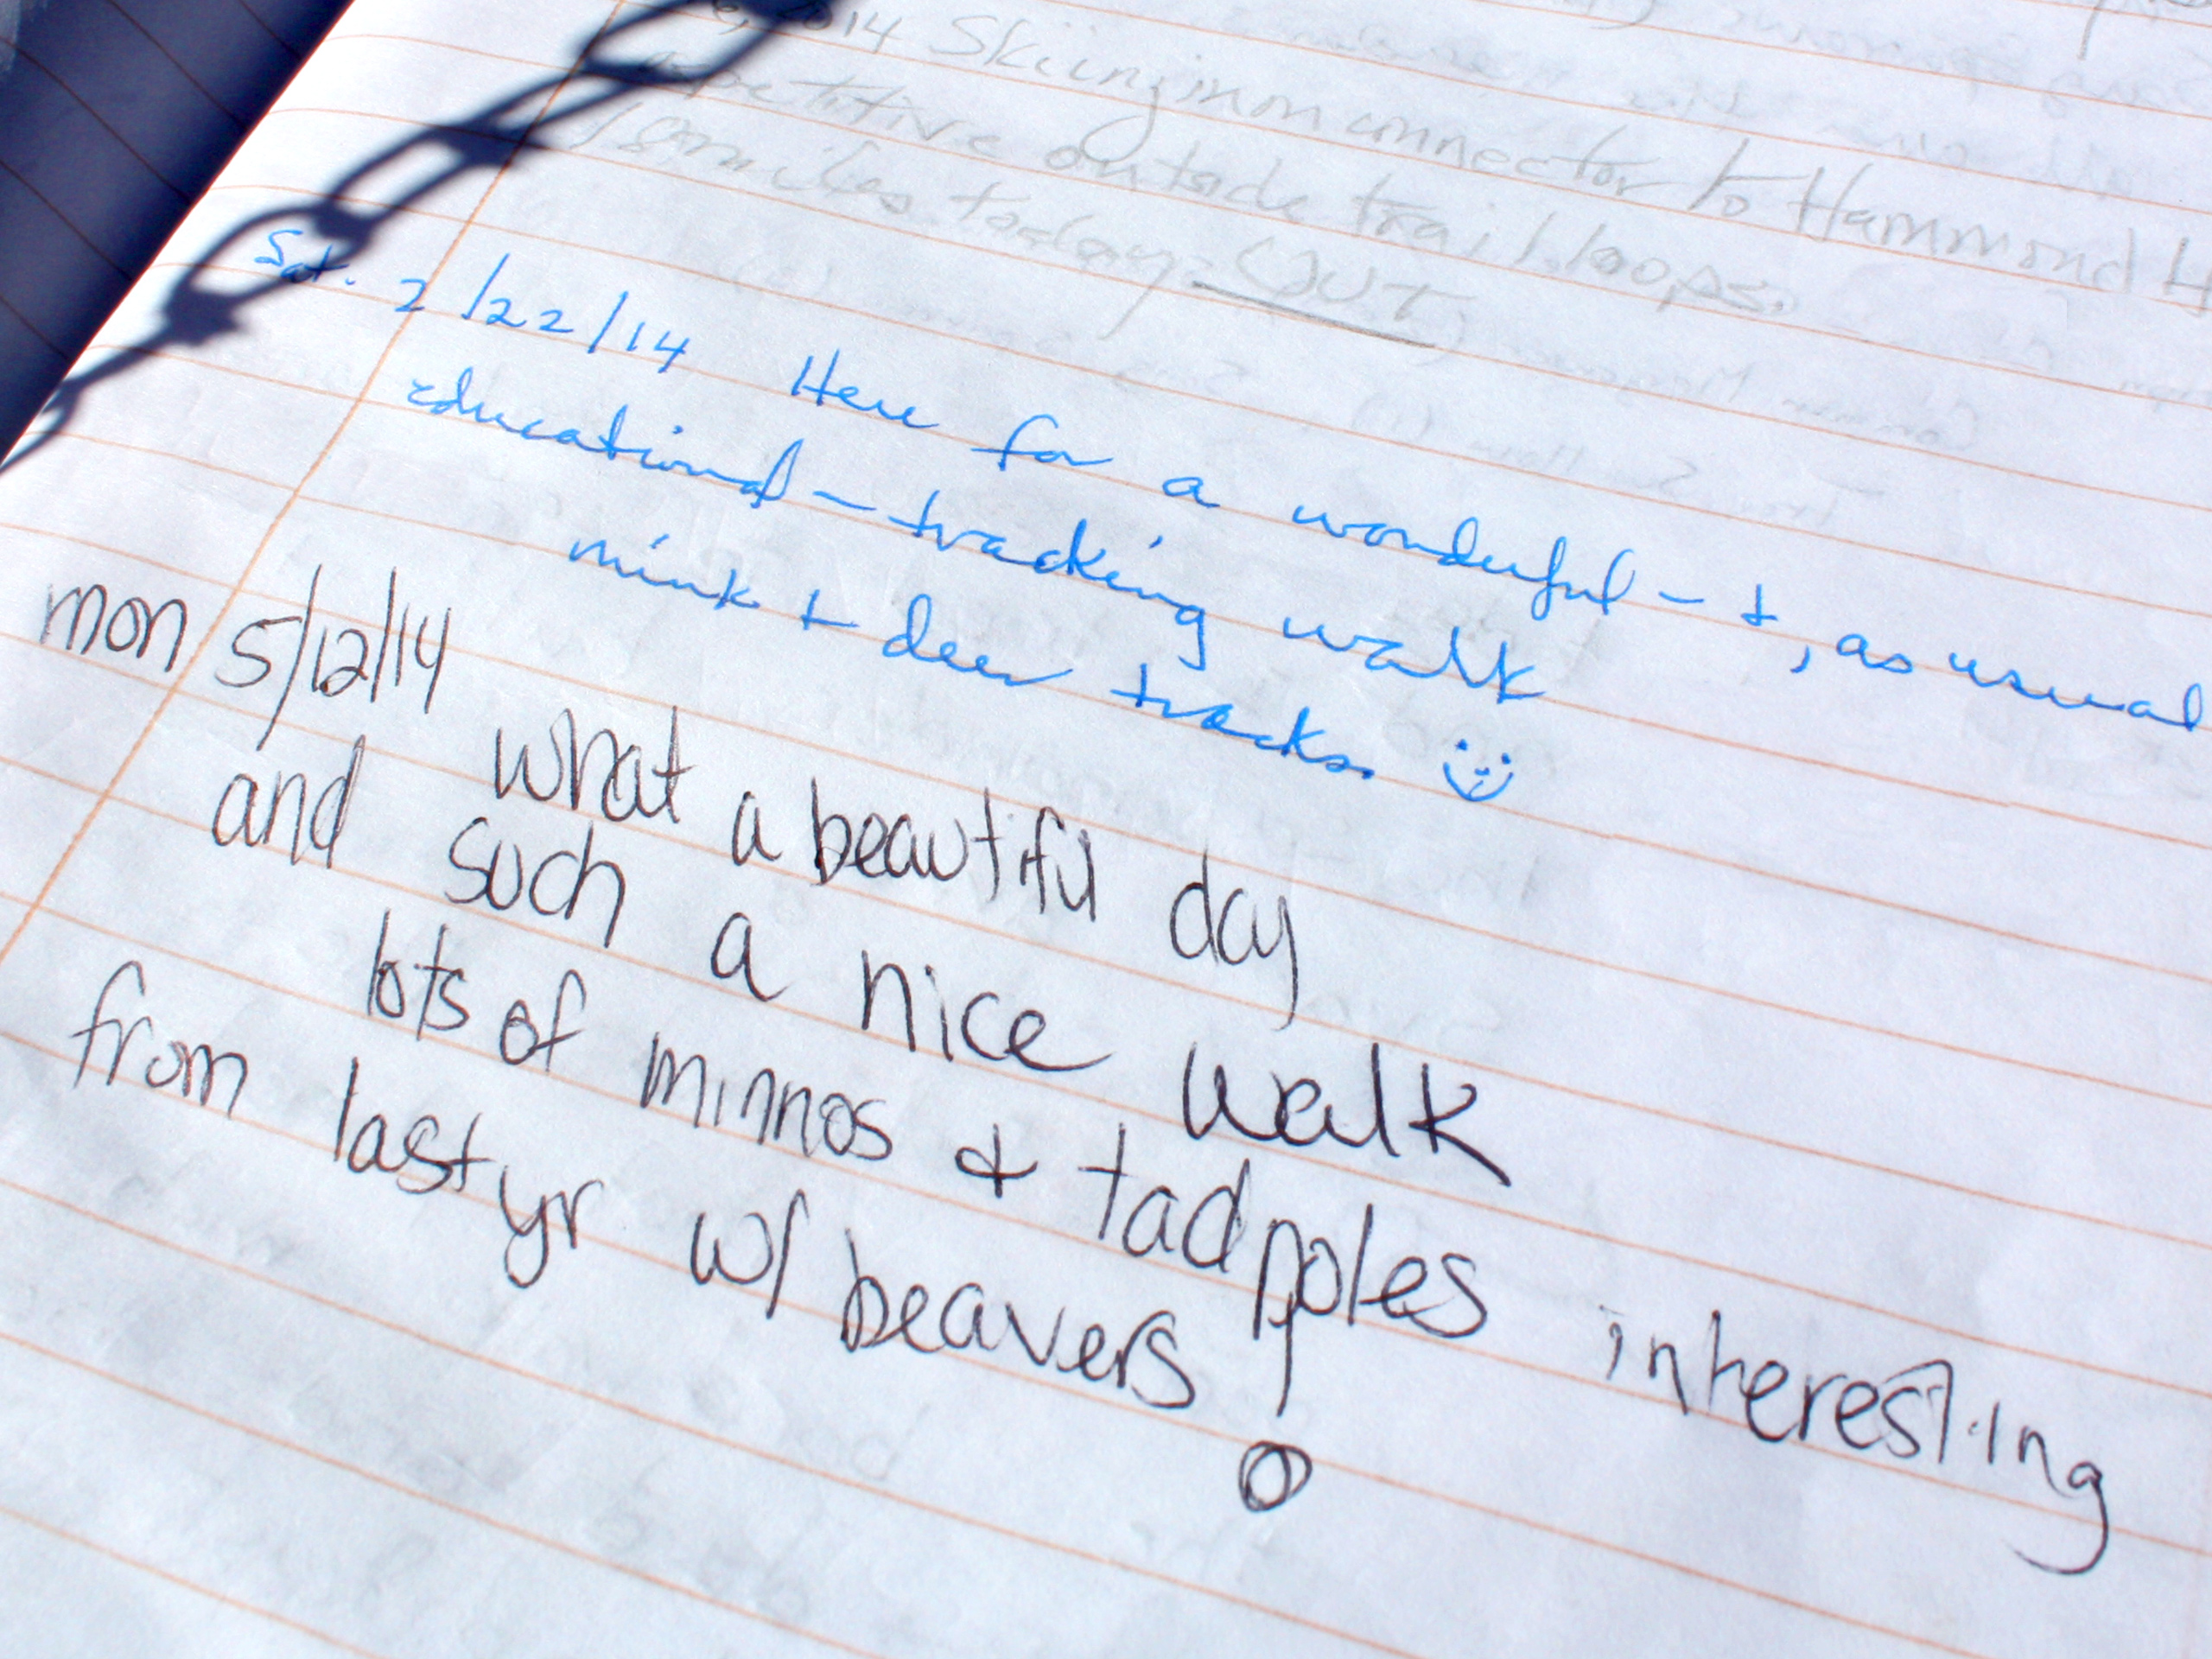 2014 Skiing in on connector to Hammond
repetitive outside trail loops.
18 miles today.
Sat. 2/22/14 Here for a wonderful - +, as usual
educational - tracking walk
mink + deer tracks.
mon 5/12/14 what a beautiful day
and such a nice walk
lots of minnos & tadpoles interesting
from last yr w/ beavers!